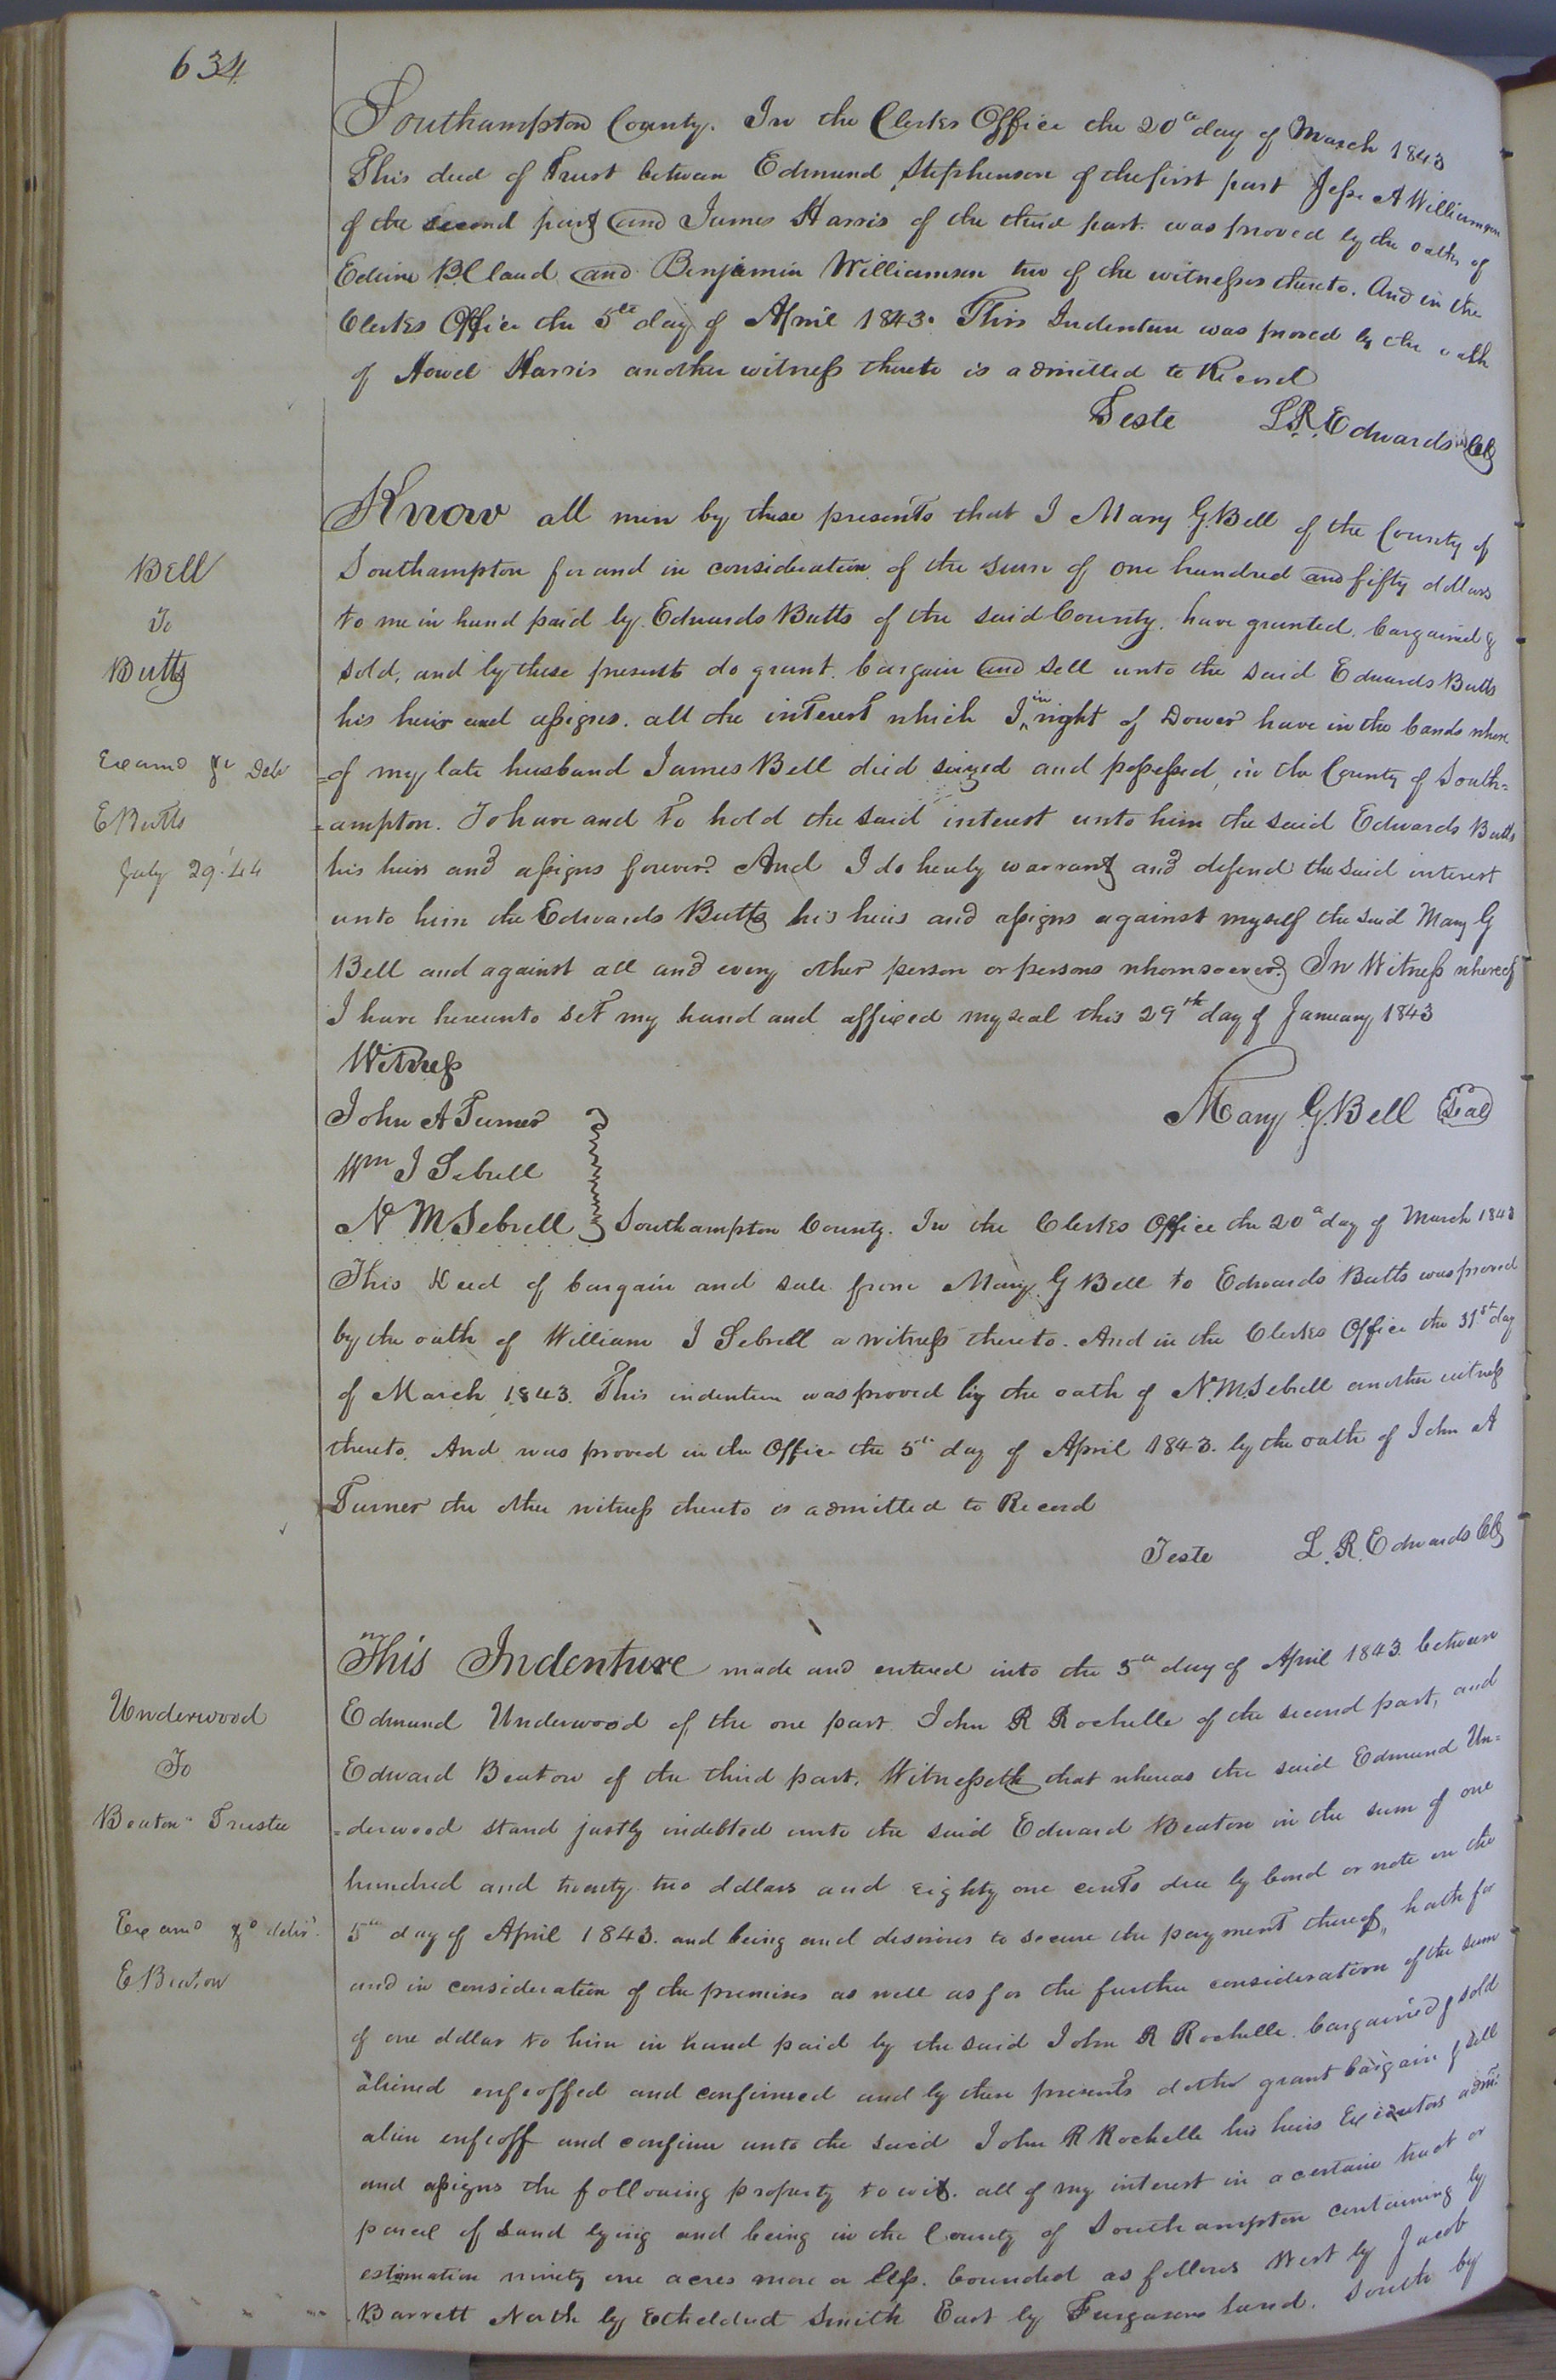 634
Southampton County. In the Clerks Office the 20th day of March 1843
This deed of Trust between Edmund Stephenson of the first part Jesse A Williamson
of the second part and James Harris of the third part was proved by the oaths of
Edwin B Claud and Benjamin Williamson two of the witnesses thereto. And in the
Clerks Office the 5th day of April 1843. This Indenture was proved by the oath
of Howel Harris another witness thereto is admitted to Record
Teste L. R. Edwards Clk
Bell
To
Butts
Examd & Delv
E Butts
July 29. '44
Know all men by these presents that I Mary G. Bell of the County of
Southampton for and in consideration of the sum of one hundred and fifty dollars
to me in hand paid by Edwards Butts of the said County, have granted, bargained &
sold, and by these presents do grant, bargain and sell unto the said Edwards Butts
his heirs and assigns, all the interest which I in right of Dower have in the lands where
=of my late husband James Bell died seized and possessed, in the County of South=
=ampton. To have and to hold the said interest unto him the said Edwards Butts
his heirs and assigns forever. And I do hereby warrant and defend the said interest
unto him the Edwards Butts his heirs and assigns against myself the said Mary G
Bell and against all and every other person or persons whomsoever. In Witness whereof
I have hereunto set my hand and affixed my seal this 29th day of January 1843
Witness
John A Turner
Mary G. Bell Seal
Wm J Sebrell
N. M. Sebrell Southampton County. In the Clerks Office the 20th day of March 1843
This Deed of bargain and sale from Mary G Bell to Edwards Butts was proved
by the oath of William J Sebrell a witness thereto. And in the Clerks Office the 31st day
of March 1843. This indenture was proved by the oath of N. M. Sebrell another witness
thereto. And was proved in the Office the 5th day of April 1843. by the oath of John A
Turner the other witness thereto is admitted to Record
Teste L. R. Edwards Clk
Underwood
To
Beaton Trustee
Examd & delv
E. Beaton
This Indenture made and entered into the 5th day of April 1843. between
Edmund Underwood of the one part John R Rochelle of the second part, and
Edward Beaton of the third part. Witnesseth that whereas the said Edmund Un=
=derwood stand justly indebted unto the said Edward Beaton in the sum of one
hundred and twenty two dollars and eighty one cents due by bond or note on the
5th day of April 1843. and being and desirous to secure the payment thereof, hath for
and in consideration of the premises as well as for the further consideration of the sum
of one dollar to him in hand paid by the said John R Rochelle. bargained & sold
aliened enfeoffed and confirmed and by these presents doth grant bargain & sell
alien enfeoff and confirm unto the said John R Rochelle his heirs Executors adms
and assigns the following property to wit. all of my interest in a certain tract or
parcel of Land lying and being in the County of Southampton containing by
estimation ninety one acres more or less. bounded as follows West by Jacob
Barrett North by Etheldred Smith East by Furgasons land. South by